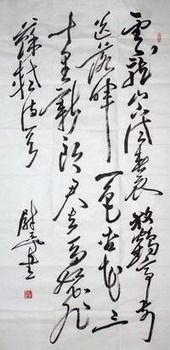 雲龍山下試春衣放鶴亭前
送落晖一色杏花三
十里新郎君去馬如飛
蘇軾詩